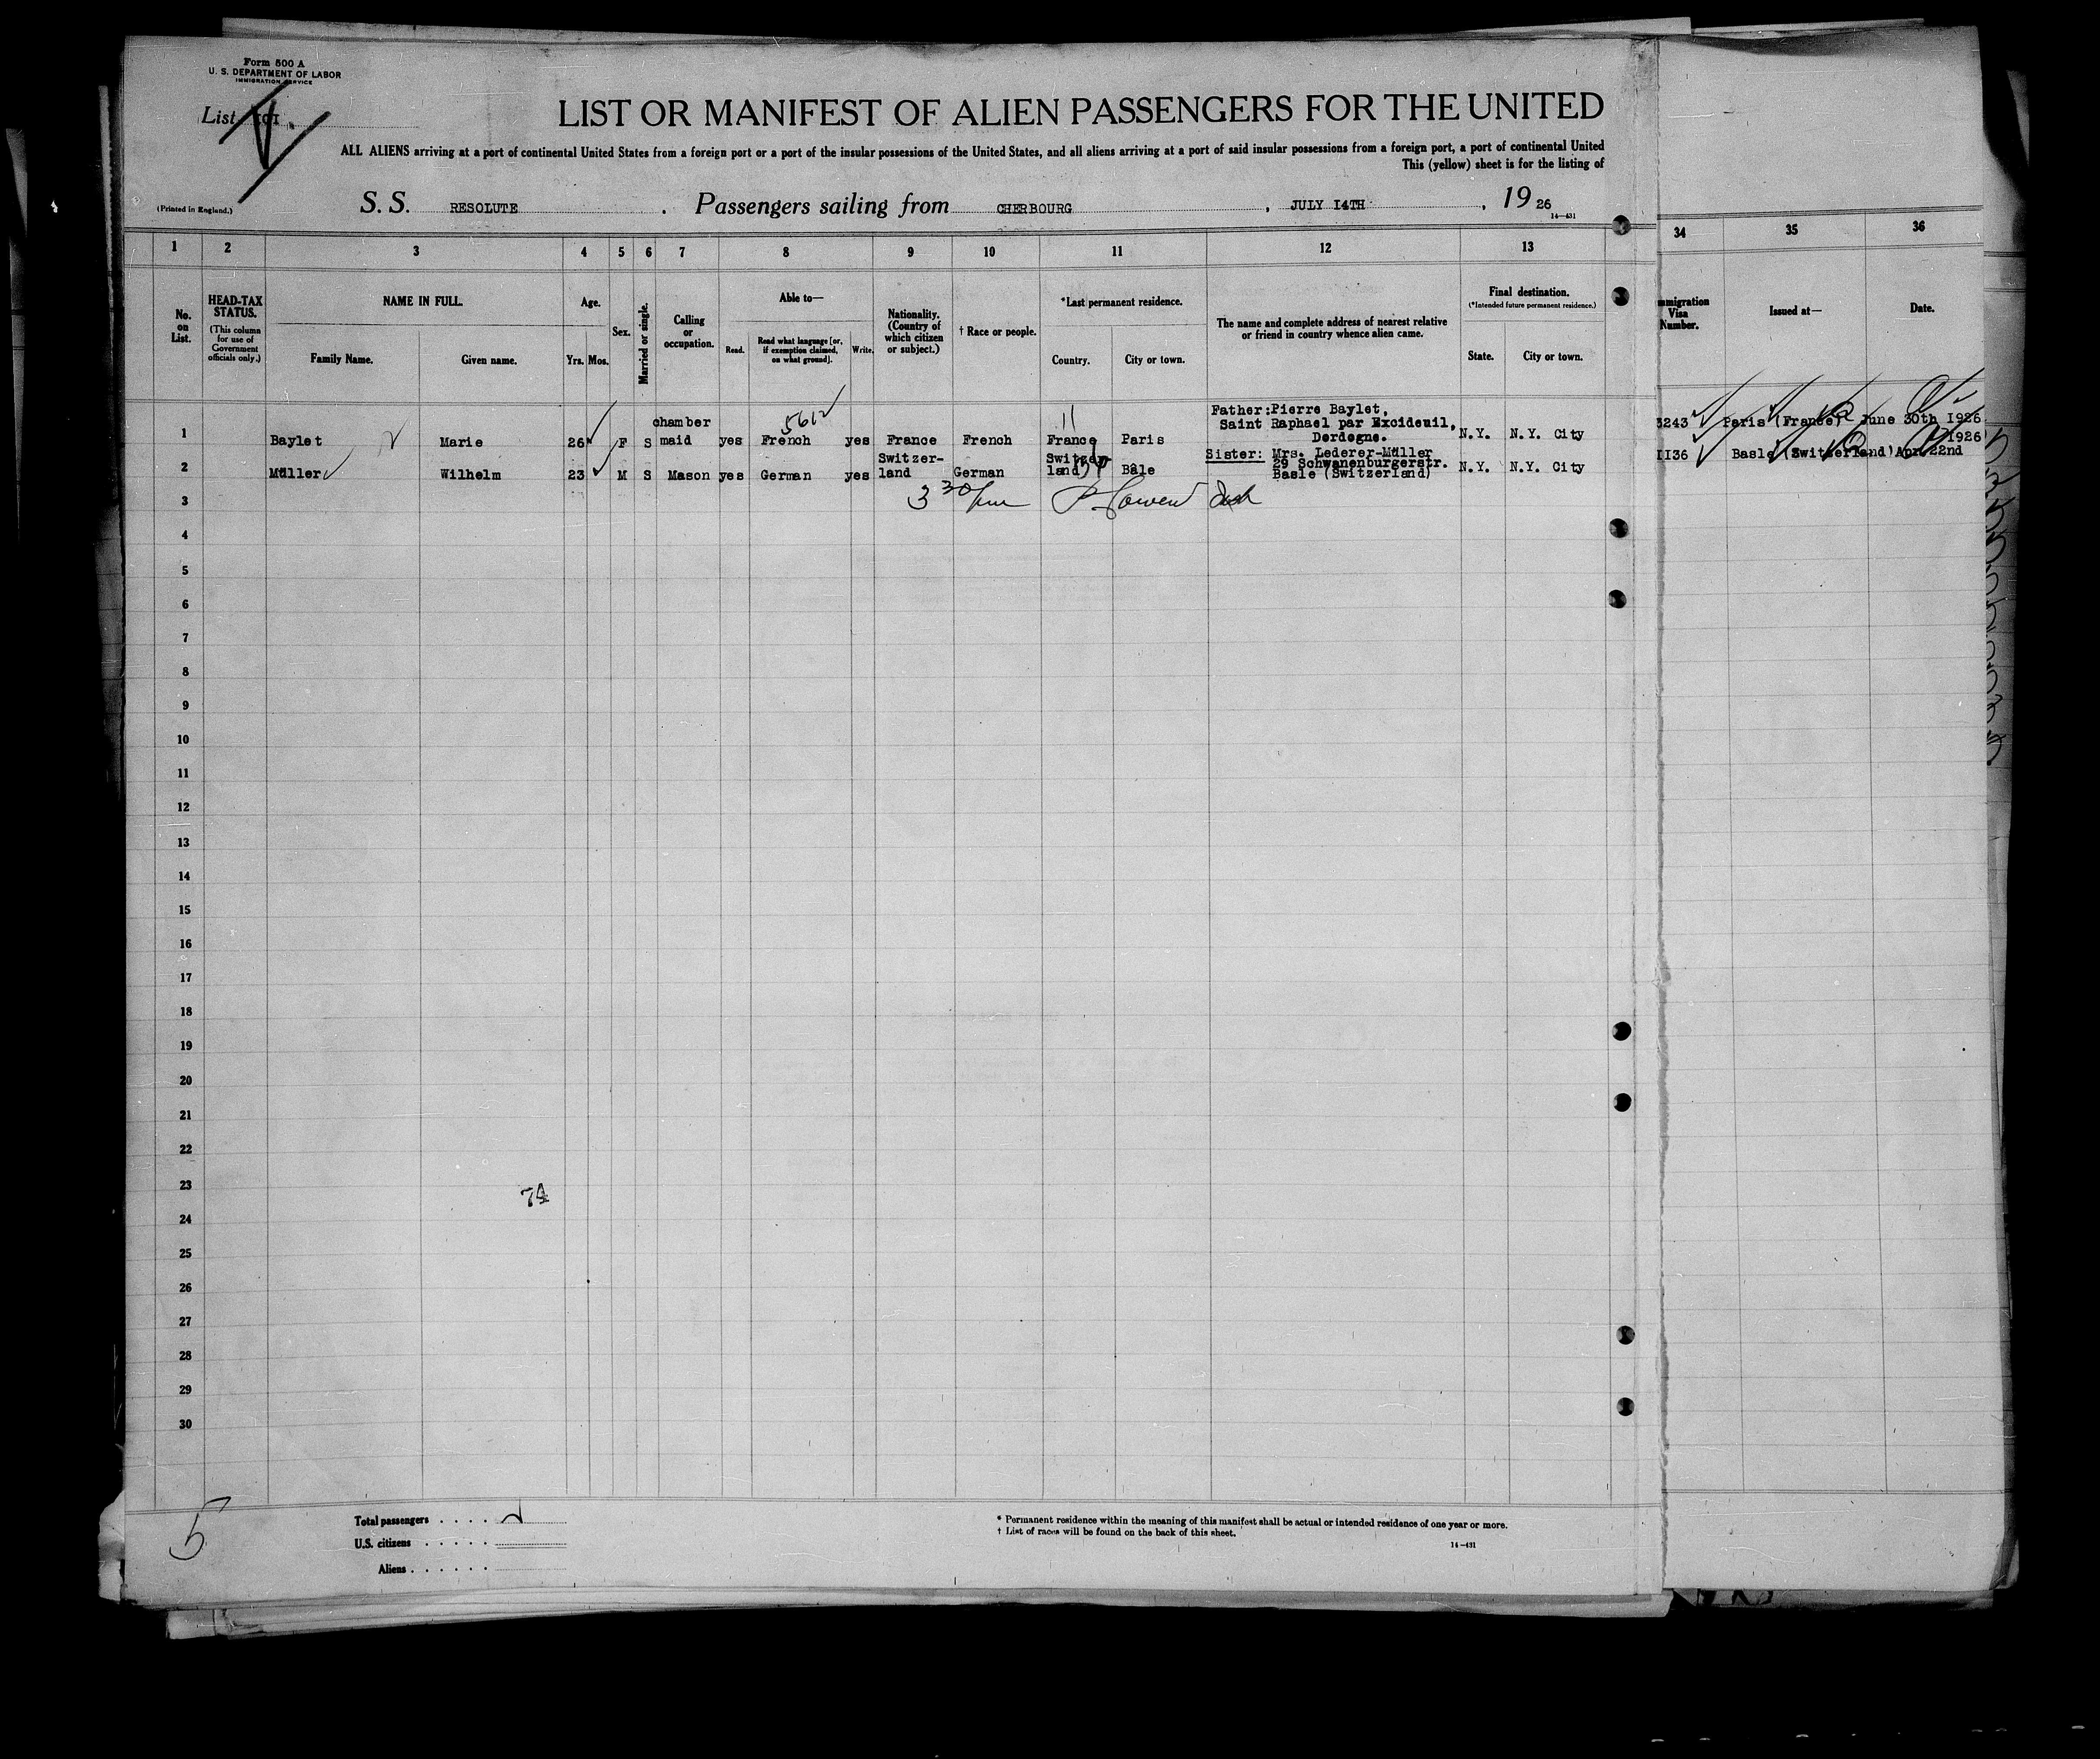 Form 500 A
U. S. DEPARTMENT OF LABOR
IMMIGRATION SERVICE
List
LIST OR MANIFEST OF ALIEN PASSENGERS FOR THE UNITED
ALL ALIENS arriving at a port of continental United States from a foreign port or a port of the insular possessions of the United States, and all aliens arriving at a port of said insular possessions from a foreign port, a port of continental United
This (yellow) sheet is for the listing of
(Printed in England.)
S. S. RESOLUTE . Passengers sailing from CHERBOURG , JULY I4TH , 19 26
14—431
1 2 3 4 5 6 7 8 9 10 11 12 13 34 35 36
No. on List.
HEAD-TAX STATUS.
(This column for use of Government officials only.)
NAME IN FULL.
Family Name. Given name.
Age.
Yrs. Mos.
Sex.
Married or single.
Calling or occupation.
Able to—
Read. Read what language [or, if exemption claimed, on what ground]. Write.
Nationality. (Country of which citizen or subject.)
† Race or people.
*Last permanent residence.
Country. City or town.
The name and complete address of nearest relative or friend in country whence alien came.
Final destination.
(*Intended future permanent residence.)
State. City or town.
Immigration Visa Number.
Issued at—
Date.
5612
11
1 Baylet Marie 26 F S chamber maid yes French yes France French France Paris Father: Pierre Baylet, Saint Raphael par Excideuil, Dordogne. N.Y. N.Y. City 3243 Paris (France) June 30th I926
2 Müller Wilhelm 23 M S Mason yes German yes Switzer-land German Switzer-land Bâle Sister: Mrs. Lederer-Müller 29 Schwanenburgerstr. Basle (Switzerland) N.Y. N.Y. City II36 Basle (Switzerland) Apr. 22nd 1926
3 3 30 pm
4
5
6
7
8
9
10
11
12
13
14
15
16
17
18
19
20
21
22
23
74
24
25
26
27
28
29
30
5
Total passengers . . . . .
U.S. citizens . . . . .
Aliens . . . . . .
* Permanent residence within the meaning of this manifest shall be actual or intended residence of one year or more.
† List of races will be found on the back of this sheet.
14—431